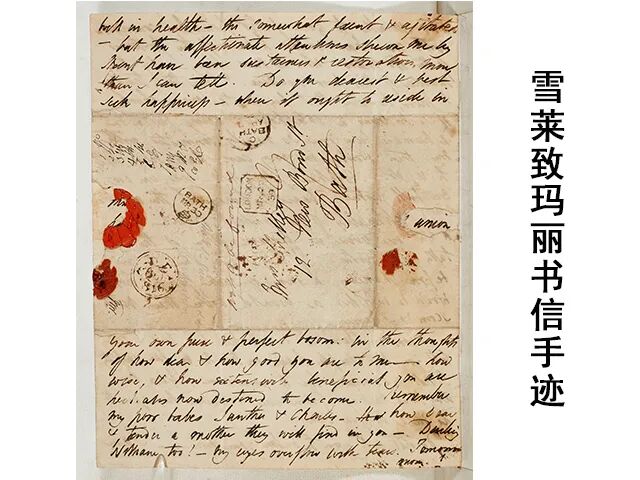 in health – tho somewhat faint & agitated
– but the affectionate attentions shewn me by
Hunt have been sustainers & restoratives more
than I can tell. Do you dearest & best
seek happiness – where it ought to reside in
BATH
BATH
Mrs Shelley
12 New Bond St
Bath
union
your own pure & perfect bosom: in the thoughts
of how dear & how good you are to me – how
wise, & how extensively beneficial you are
perhaps now destined to become. remember
my poor babes Ianthe & Charles – how dear
& tender a mother they will find in you – Darling
William too! – my eyes overflow with tears. Tomorrow
雪莱致玛丽书信手迹